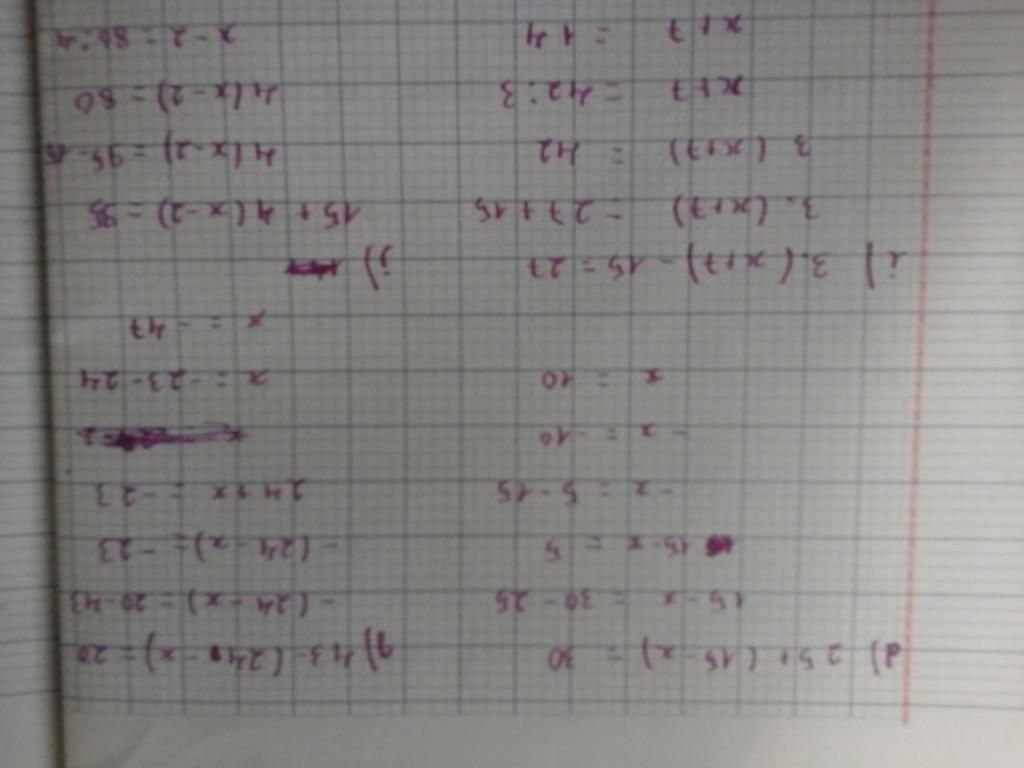 d) 25 + (15 - x) = 30
15 - x = 30 - 25
15 - x = 5
- x = 5 - 15
- x = -10
x = 10
g) 43 - (24 - x) = 20
- (24 - x) = 20 - 43
- (24 - x) = - 23
24 + x = - 23
x = - 23 - 24
x = - 47
i) 3.(x+7) - 15 = 27
3.(x+7) = 27 + 15
3 (x+7) = 42
x+7 = 42:3
x+7 = 14
j)
15 + 4(x-2) = 95
4(x-2) = 95 - 15
4(x-2) = 80
x - 2 = 80:4